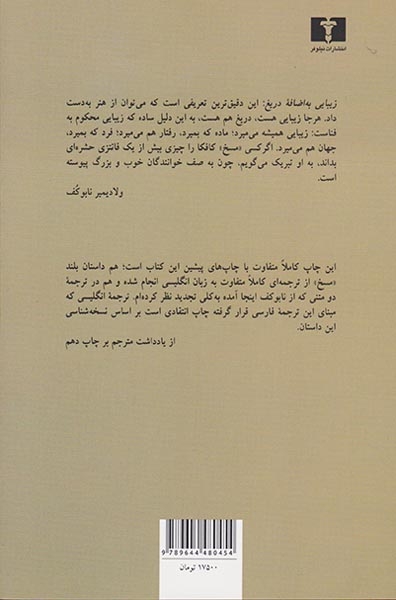 انتشارات نیلوفر
زیبایی به‌اضافهٔ دریغ: این دقیق‌ترین تعریفی است که می‌توان از هنر به‌دست
داد. هرجا زیبایی هست، دریغ هم هست، به این دلیل ساده که زیبایی محکوم به
فناست: زیبایی همیشه می‌میرد؛ ماده که بمیرد، رفتار هم می‌میرد؛ فرد که بمیرد،
جهان هم می‌میرد. اگر کسی «مسخ» کافکا را چیزی بیش از یک فانتزی حشره‌ای
بداند، به او تبریک می‌گویم، چون به صف خوانندگان خوب و بزرگ پیوسته
است.
ولادیمیر نابوکُف
این چاپ کاملاً متفاوت با چاپ‌های پیشین این کتاب است؛ هم داستان بلند
«مسخ» از ترجمه‌ای کاملاً متفاوت به زبان انگلیسی انجام شده و هم در ترجمهٔ
دو متنی که از نابوکف اینجا آمده به‌کلی تجدید نظر کرده‌ام. ترجمهٔ انگلیسی که
مبنای این ترجمهٔ فارسی قرار گرفته چاپ انتقادی است بر اساس نسخه‌شناسی
این داستان.
از یادداشت مترجم بر چاپ دهم
9 789644 480454
۱۷۵۰۰ تومان